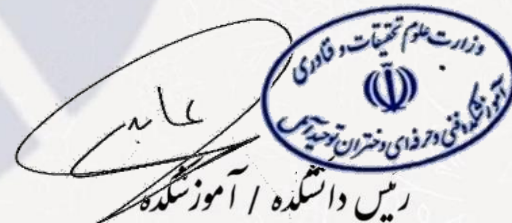 وزارت علوم تحقیقات و فناوری
آموزشکده فنی و حرفه‌ای دختران توحید آمل
عابد
رئیس دانشکده / آموزشکده